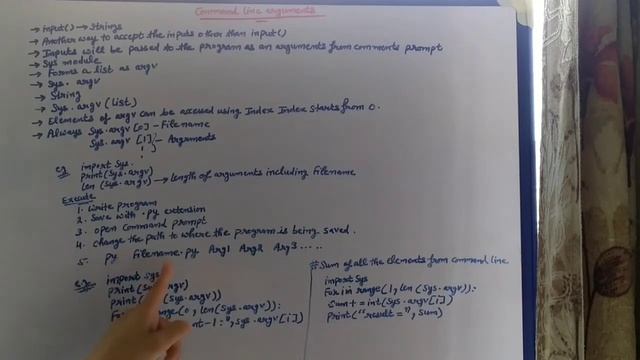 Command line arguments
→ input() → Strings
→ Another way to accept the inputs other than input()
→ Inputs will be passed to the program as an arguments from comments prompt
→ Sys module
→ Forms a list as argv
→ Sys. argv
→ String
→ Sys. argv (list)
→ Elements of argv can be accused using Index Index starts from 0.
→ Always Sys.argv [0] - Filename
Sys. argv [1] - Arguments
eg import Sys.
print(Sys.argv)
len (sys.argv) → length of arguments including filename
Execute
1. Write program
2. Save with .py extension
3. open Command prompt
4. change the path to where the program is being saved.
5. py Filename.py Arg1 Arg2 Arg3 .....
eg:- import sys
print(
print( (sys.argv))
range(0, len(sys.argv)):
nt-1:", sys.argv[i])
# Sum of all the Elements from Command line
import Sys
For i in range(1, len (Sys.argv)):
Sum + = int(Sys.argv[i])
Print("result =", Sum)